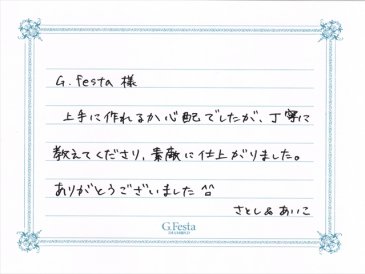 G.festa 様
上手に作れるか心配でしたが、丁寧に
教えてくださり、素敵に仕上がりました。
ありがとうございました ^^
さとし & あいこ
G.Festa